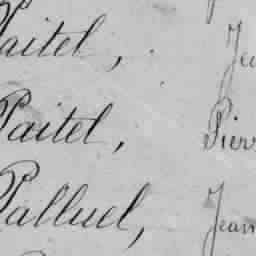 Paitel, Jea
Paitel, Pierr
Palluel, Jean